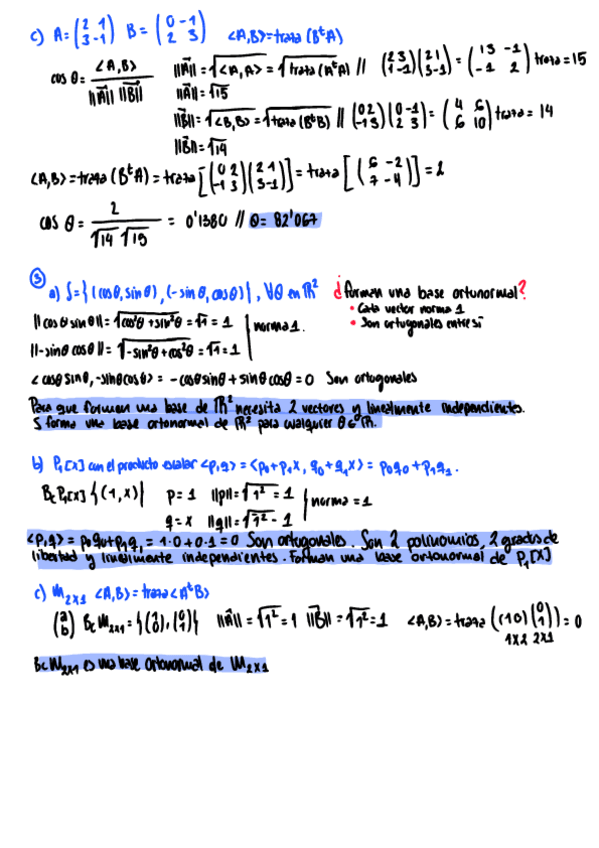 c) A = (2 1 / 3 -1) B = (0 -1 / 2 3) <A,B> = traza (BᵗA)
cos θ = <A,B> / ||A|| ||B|| ||A|| = √<A,A> = √traza(AᵗA) // (2 3 / 1 -1)(2 1 / 3 -1) = (13 -1 / -1 2) traza = 15
||A|| = √15
||B|| = √<B,B> = √traza(BᵗB) // (0 2 / -1 3)(0 -1 / 2 3) = (4 6 / 6 10) traza = 14
||B|| = √14
<A,B> = traza (BᵗA) = traza [(0 2 / -1 3)(2 1 / 3 -1)] = traza [(6 -2 / 7 -4)] = 2
cos θ = 2 / √14 √15 = 0'1380 // θ = 82'067
③
a) S = {(cosθ, sinθ), (-sinθ, cosθ)}, ∀θ en ℝ² ¿forman una base ortonormal?
• Cada vector norma 1
• Son ortogonales entre sí
||cosθ sinθ|| = √cos²θ + sin²θ = √1 = 1
norma 1.
||-sinθ cosθ|| = √-sin²θ + cos²θ = √1 = 1
<cosθ sinθ, -sinθ cosθ> = -cosθ sinθ + sinθ cosθ = 0 Son ortogonales
Para que formen una base de ℝ² necesita 2 vectores y linealmente independientes.
S forma una base ortonormal de ℝ² para cualquier θ ∈ ℝ.
b) P₁[x] con el producto escalar <p,q> = <p₀+p₁x, q₀+q₁x> = p₀q₀ + p₁q₁.
Bc P₁[x] {(1,x)} p = 1 ||p|| = √1² = 1
norma = 1
q = x ||q|| = √1² = 1
<p,q> = p₀q₀ + p₁q₁ = 1·0 + 0·1 = 0 Son ortogonales. Son 2 polinomios, 2 grados de
libertad y linealmente independientes. Forman una base ortonormal de P₁[x]
c) M₂ₓ₁ <A,B> = traza <AᵗB>
(a / b) Bc M₂ₓ₁ = {(1 / 0), (0 / 1)} ||A|| = √1² = 1 ||B|| = √1² = 1 <A,B> = traza ((1 0)(0 / 1)) = 0
1x2 2x1
Bc M₂ₓ₁ es una base ortonormal de M₂ₓ₁